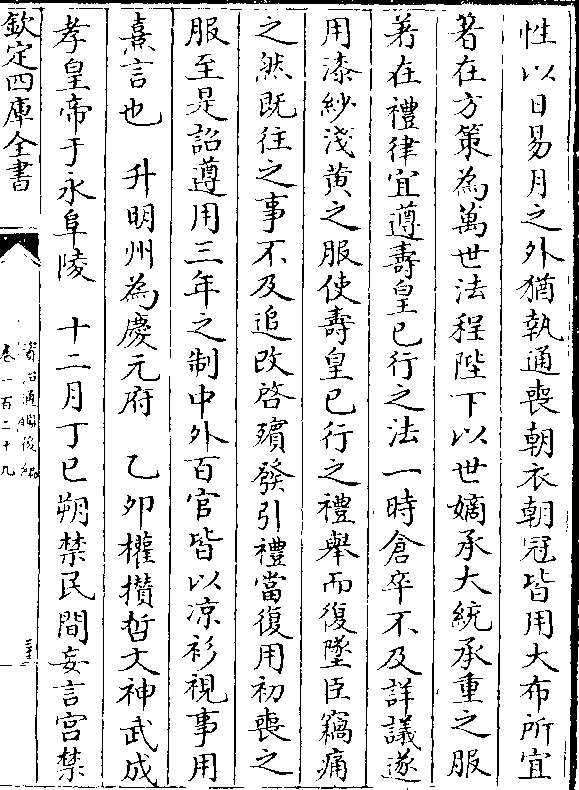 性以日易月之外猶執通喪朝衣朝冠皆用大布所宜
著在方策為萬世法程陛下以世嫡承大統承重之服
著在禮律宜遵壽皇已行之法一時倉卒不及詳議遂
用漆紗淺黄之服使壽皇已行之禮舉而復墜臣竊痛
之然既往之事不及追改啓殯發引禮當復用初喪之
服至是詔遵用三年之制中外百官皆以凉衫視事用
熹言也　升明州為慶元府　乙卯權攢哲文神武成
孝皇帝于永阜陵　十二月丁巳朔禁民間妄言宫禁
欽定四庫全書
資治通鑑後編
卷一百二十九